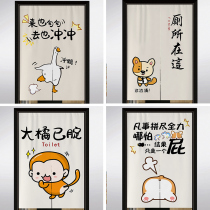 来也匆匆
去也冲冲
冲鸭!
厕所在這
大橘已脫
Toilet
凡事拼尽全力
哪怕
... 结果
只是一个
屁